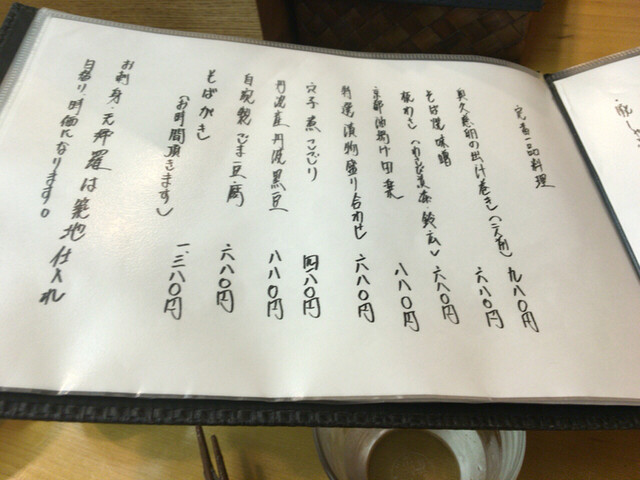 定番一品料理
奥久慈卵の出汁巻き(二人前) 九八〇円
そば焼味噌 六八〇円
板わさ(わさび美藻 鈴広) 六八〇円
京都油揚げ田楽 八八〇円
漬物盛り合わせ 六八〇円
穴子煮こごり 四八〇円
丹波産丹波黒豆 八八〇円
自家製ごま豆腐 六八〇円
そばがき
(お時間頂きます) 一、三八〇円
お刺身・天麩羅は築地仕入れ
日替り、時価になります。